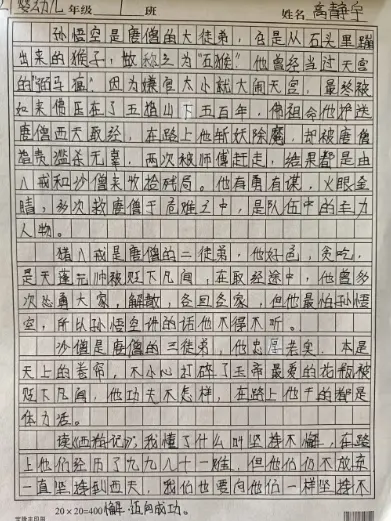 婴幼儿年级 1 班 姓名 高静宇
孙悟空是唐僧的大徒弟,它是从石头里蹦
出来的猴子,故称之为“石猴”他曾经当过天宫
的“弼马瘟”因为嫌官太小就大闹天宫,最终被
如来佛压在了五指山下五百年,佛祖命他护送
唐僧西天取经,在路上他斩妖除魔,却被唐僧
指责滥杀无辜,两次被师傅赶走,结果都是由
八戒和沙僧来收拾残局。他有勇有谋,火眼金
睛,多次救唐僧于危难之中,是队伍中的主力
人物。
猪八戒是唐僧的二徒弟,他好色,贪吃,
是天蓬元帅被贬下凡间,在取经途中,他曾多
次怂勇大家,解散,各回各家,但他最怕孙悟
空,所以孙悟空讲的话他不得不听。
沙僧是唐僧的三徒弟,他忠厚老实,本是
天上的卷帘,不小心打碎了玉帝最爱的花瓶被
贬下凡间,他功夫不怎样,在路上他干的都是
体力活。
读《西游记》,我懂了什么叫坚持不懈,在路
上他们经历了九九八十一难,但他们仍不放弃
一直坚持到西天,我们也要向他们一样坚持不
20×20=400 懈,迈向成功。